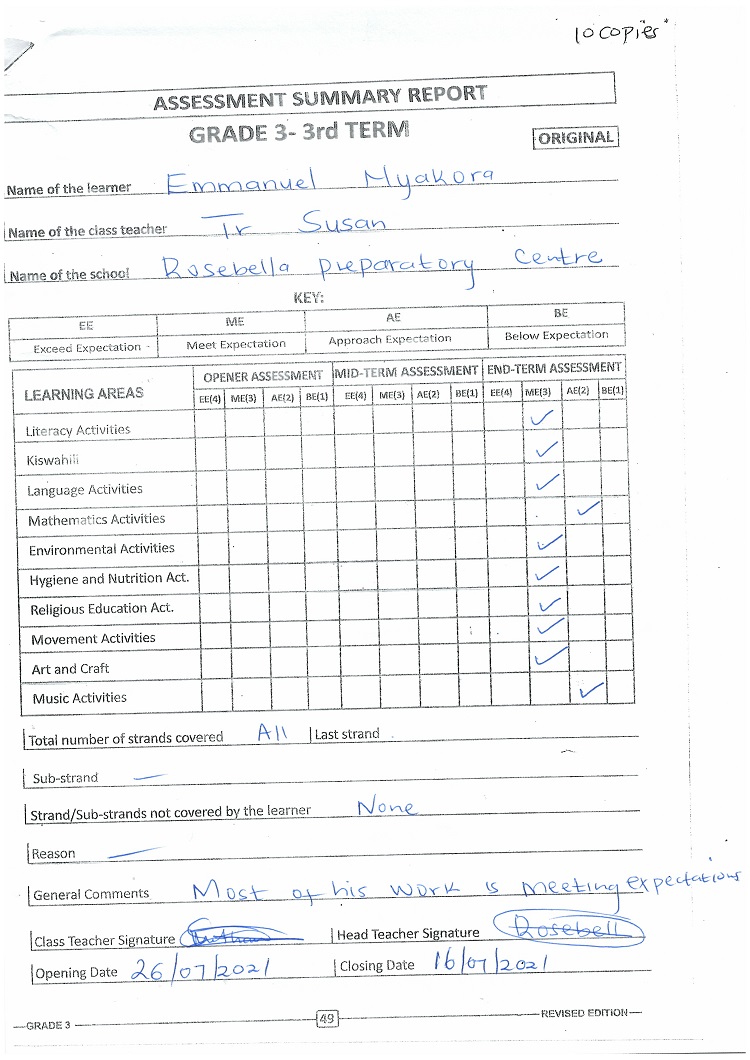 10 copies
ASSESSMENT SUMMARY REPORT
GRADE 3- 3rd TERM
ORIGINAL
Name of the learner Emmanuel Nyakora
Name of the class teacher Tr Susan
Name of the school Rosebella preparatory Centre
KEY:
EE ME AE BE
Exceed Expectation Meet Expectation Approach Expectation Below Expectation
LEARNING AREAS OPENER ASSESSMENT MID-TERM ASSESSMENT END-TERM ASSESSMENT
EE(4) ME(3) AE(2) BE(1) EE(4) ME(3) AE(2) BE(1) EE(4) ME(3) AE(2) BE(1)
Literacy Activities ✓
Kiswahili ✓
Language Activities ✓
Mathematics Activities ✓
Environmental Activities ✓
Hygiene and Nutrition Act. ✓
Religious Education Act. ✓
Movement Activities ✓
Art and Craft ✓
Music Activities ✓
Total number of strands covered All Last strand
Sub-strand —
Strand/Sub-strands not covered by the learner None
Reason —
General Comments Most of his work is meeting expectations
Class Teacher Signature Head Teacher Signature Rosebell
Opening Date 26/07/2021 Closing Date 16/07/2021
GRADE 3 49 REVISED EDITION